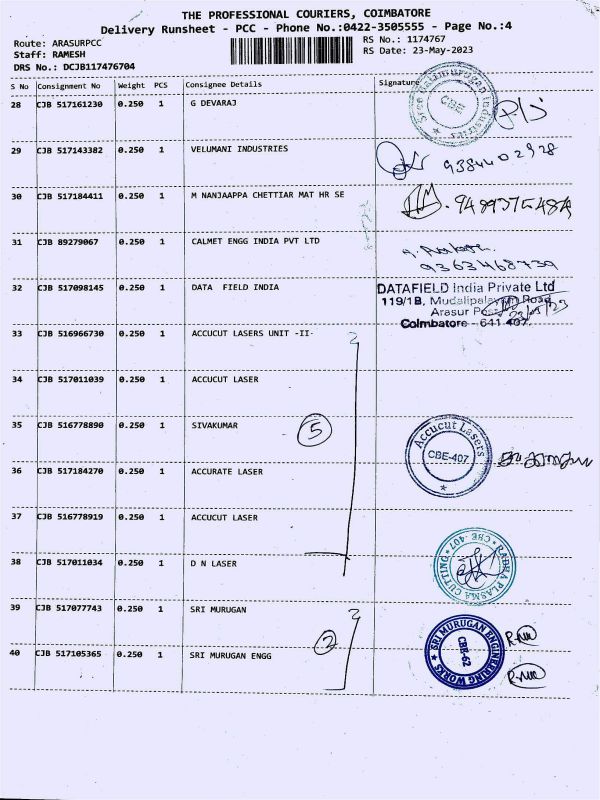 THE PROFESSIONAL COURIERS, COIMBATORE
Delivery Runsheet - PCC - Phone No.:0422-3505555 - Page No.:4
Route: ARASURPCC
Staff: RAMESH
DRS No.: DCJB117476704
RS No.: 1174767
RS Date: 23-May-2023
S No Consignment No Weight PCS Consignee Details Signature
28 CJB 517161230 0.250 1 G DEVARAJ
CBE
29 CJB 517143382 0.250 1 VELUMANI INDUSTRIES
9384402928
30 CJB 517184411 0.250 1 M NANJAAPPA CHETTIAR MAT HR SE
31 CJB 89279067 0.250 1 CALMET ENGG INDIA PVT LTD
9363468739
32 CJB 517098145 0.250 1 DATA FIELD INDIA
DATAFIELD India Private Ltd
119/1B, Mudalipalayam Road
Arasur Post
Coimbatore - 641 407.
33 CJB 516966730 0.250 1 ACCUCUT LASERS UNIT -II-
34 CJB 517011039 0.250 1 ACCUCUT LASER
35 CJB 516778890 0.250 1 SIVAKUMAR
5
Accucut Lasers
CBE-407
36 CJB 517184270 0.250 1 ACCURATE LASER
37 CJB 516778919 0.250 1 ACCUCUT LASER
38 CJB 517011034 0.250 1 D N LASER
RADHA PLASMA CUTTING
CBE - 407
39 CJB 517077743 0.250 1 SRI MURUGAN
2
SRI MURUGAN ENGINEERING WORKS
CBE-62
40 CJB 517105365 0.250 1 SRI MURUGAN ENGG